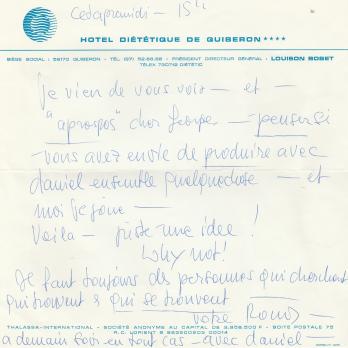 Cet apramidi - 15h
HOTEL DIÉTÉTIQUE DE QUIBERON ★★★★
SIÈGE SOCIAL : 56170 QUIBERON - TÉL. (97) 52.66.66 - PRÉSIDENT DIRECTEUR GÉNÉRAL : LOUISON BOBET
TÉLEX 730712 DIÉTÉTIC
Je vien de vous voir - et -
"apropos" cher - penser si
vous avez envie de produire avec
daniel ensemble quelquechose - et
moi je joue -
Voila - juste une idee !
Why not!
Il faut toujours des personnes qui cherchent
qui trouvent & qui se trouvent
votre Romy -
THALASSA-INTERNATIONAL - SOCIÉTÉ ANONYME AU CAPITAL DE 3.858.500 F - BOITE POSTALE 75
R.C. LORIENT B
a demain soir en tout cas - avec daniel -